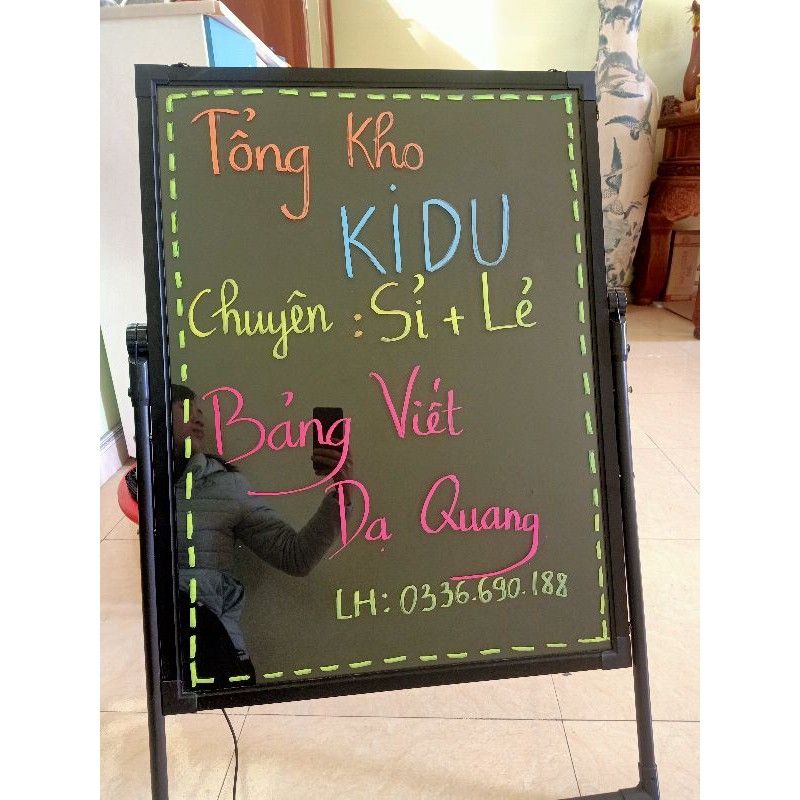 Tổng Kho
KiDU
Chuyên : Sỉ + Lẻ
Bảng Viết
Dạ Quang
LH: 0336.690.188